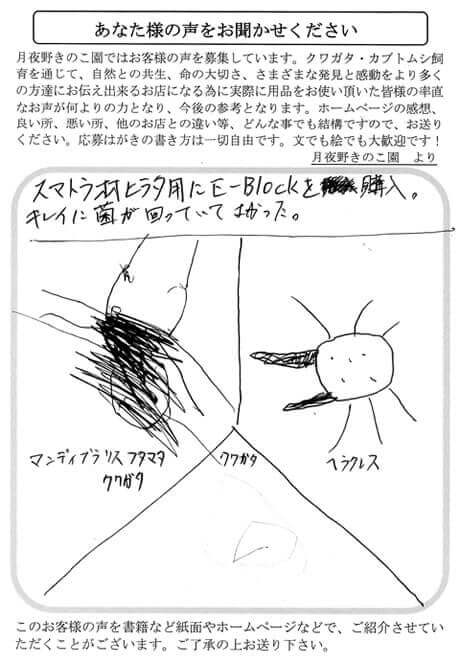 あなた様の声をお聞かせください
月夜野きのこ園ではお客様の声を募集しています。クワガタ・カブトムシ飼
育を通じて、自然との共生、命の大切さ、さまざまな発見と感動をより多く
の方達にお伝え出来るお店になる為に実際に用品をお使い頂いた皆様の率直
なお声が何よりの力となり、今後の参考となります。ホームページの感想、
良い所、悪い所、他のお店との違い等、どんな事でも結構ですので、お送り
ください。応募はがきの書き方は一切自由です。文でも絵でも大歓迎です！
月夜野きのこ園　より
スマトラオオヒラタ用にE-Blockを購入。
キレイに菌が回っていてよかった。
マンディブラリスフタマタ
クワガタ
クワガタ
ヘラクレス
このお客様の声を書籍など紙面やホームページなどで、ご紹介させてい
ただくことがございます。ご了承の上お送り下さい。